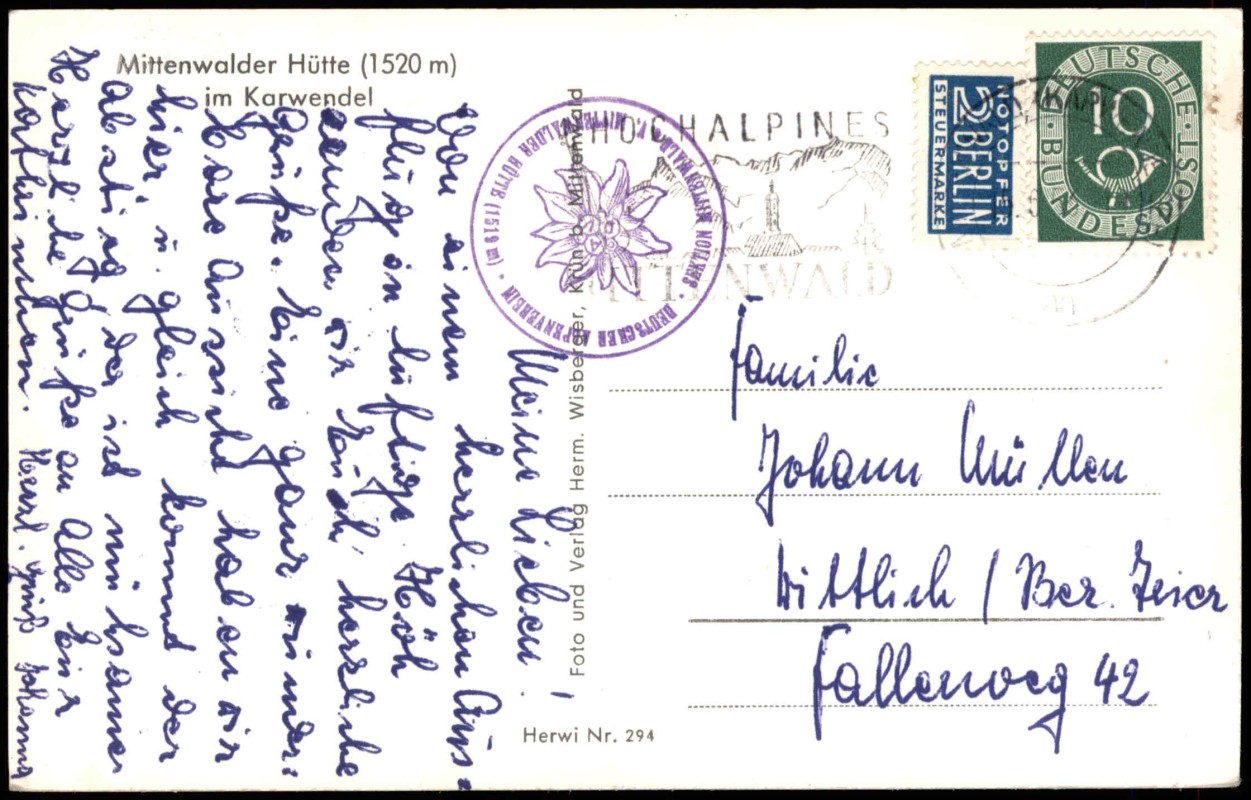 Mittenwalder Hütte (1520 m)
im Karwendel
Meine Lieben!
Von einem herrlichen Aus-
flug in luftige Höh
senden wir Euch herzliche
Grüße. Eine ganz wunder-
bare Aussicht haben wir
hier, u. gleich kommt der
Abstieg der ist mühsamer
Herzliche Grüße an Alle Eur
Herzl. Gruß Johanna
Foto und Verlag Herm. Wisberger, Krün b. Mittenwald
Herwi Nr. 294
DEUTSCHER ALPENVEREIN
MITTENWALDER HÜTTE (1519 m)
HOCHALPINES
MITTENWALD
NOTOPFER
2 BERLIN
STEUERMARKE
DEUTSCHE BUNDESPOST
10
Familie
Johann Müllen
Wittlich / Bez. Trier
Fallerweg 42